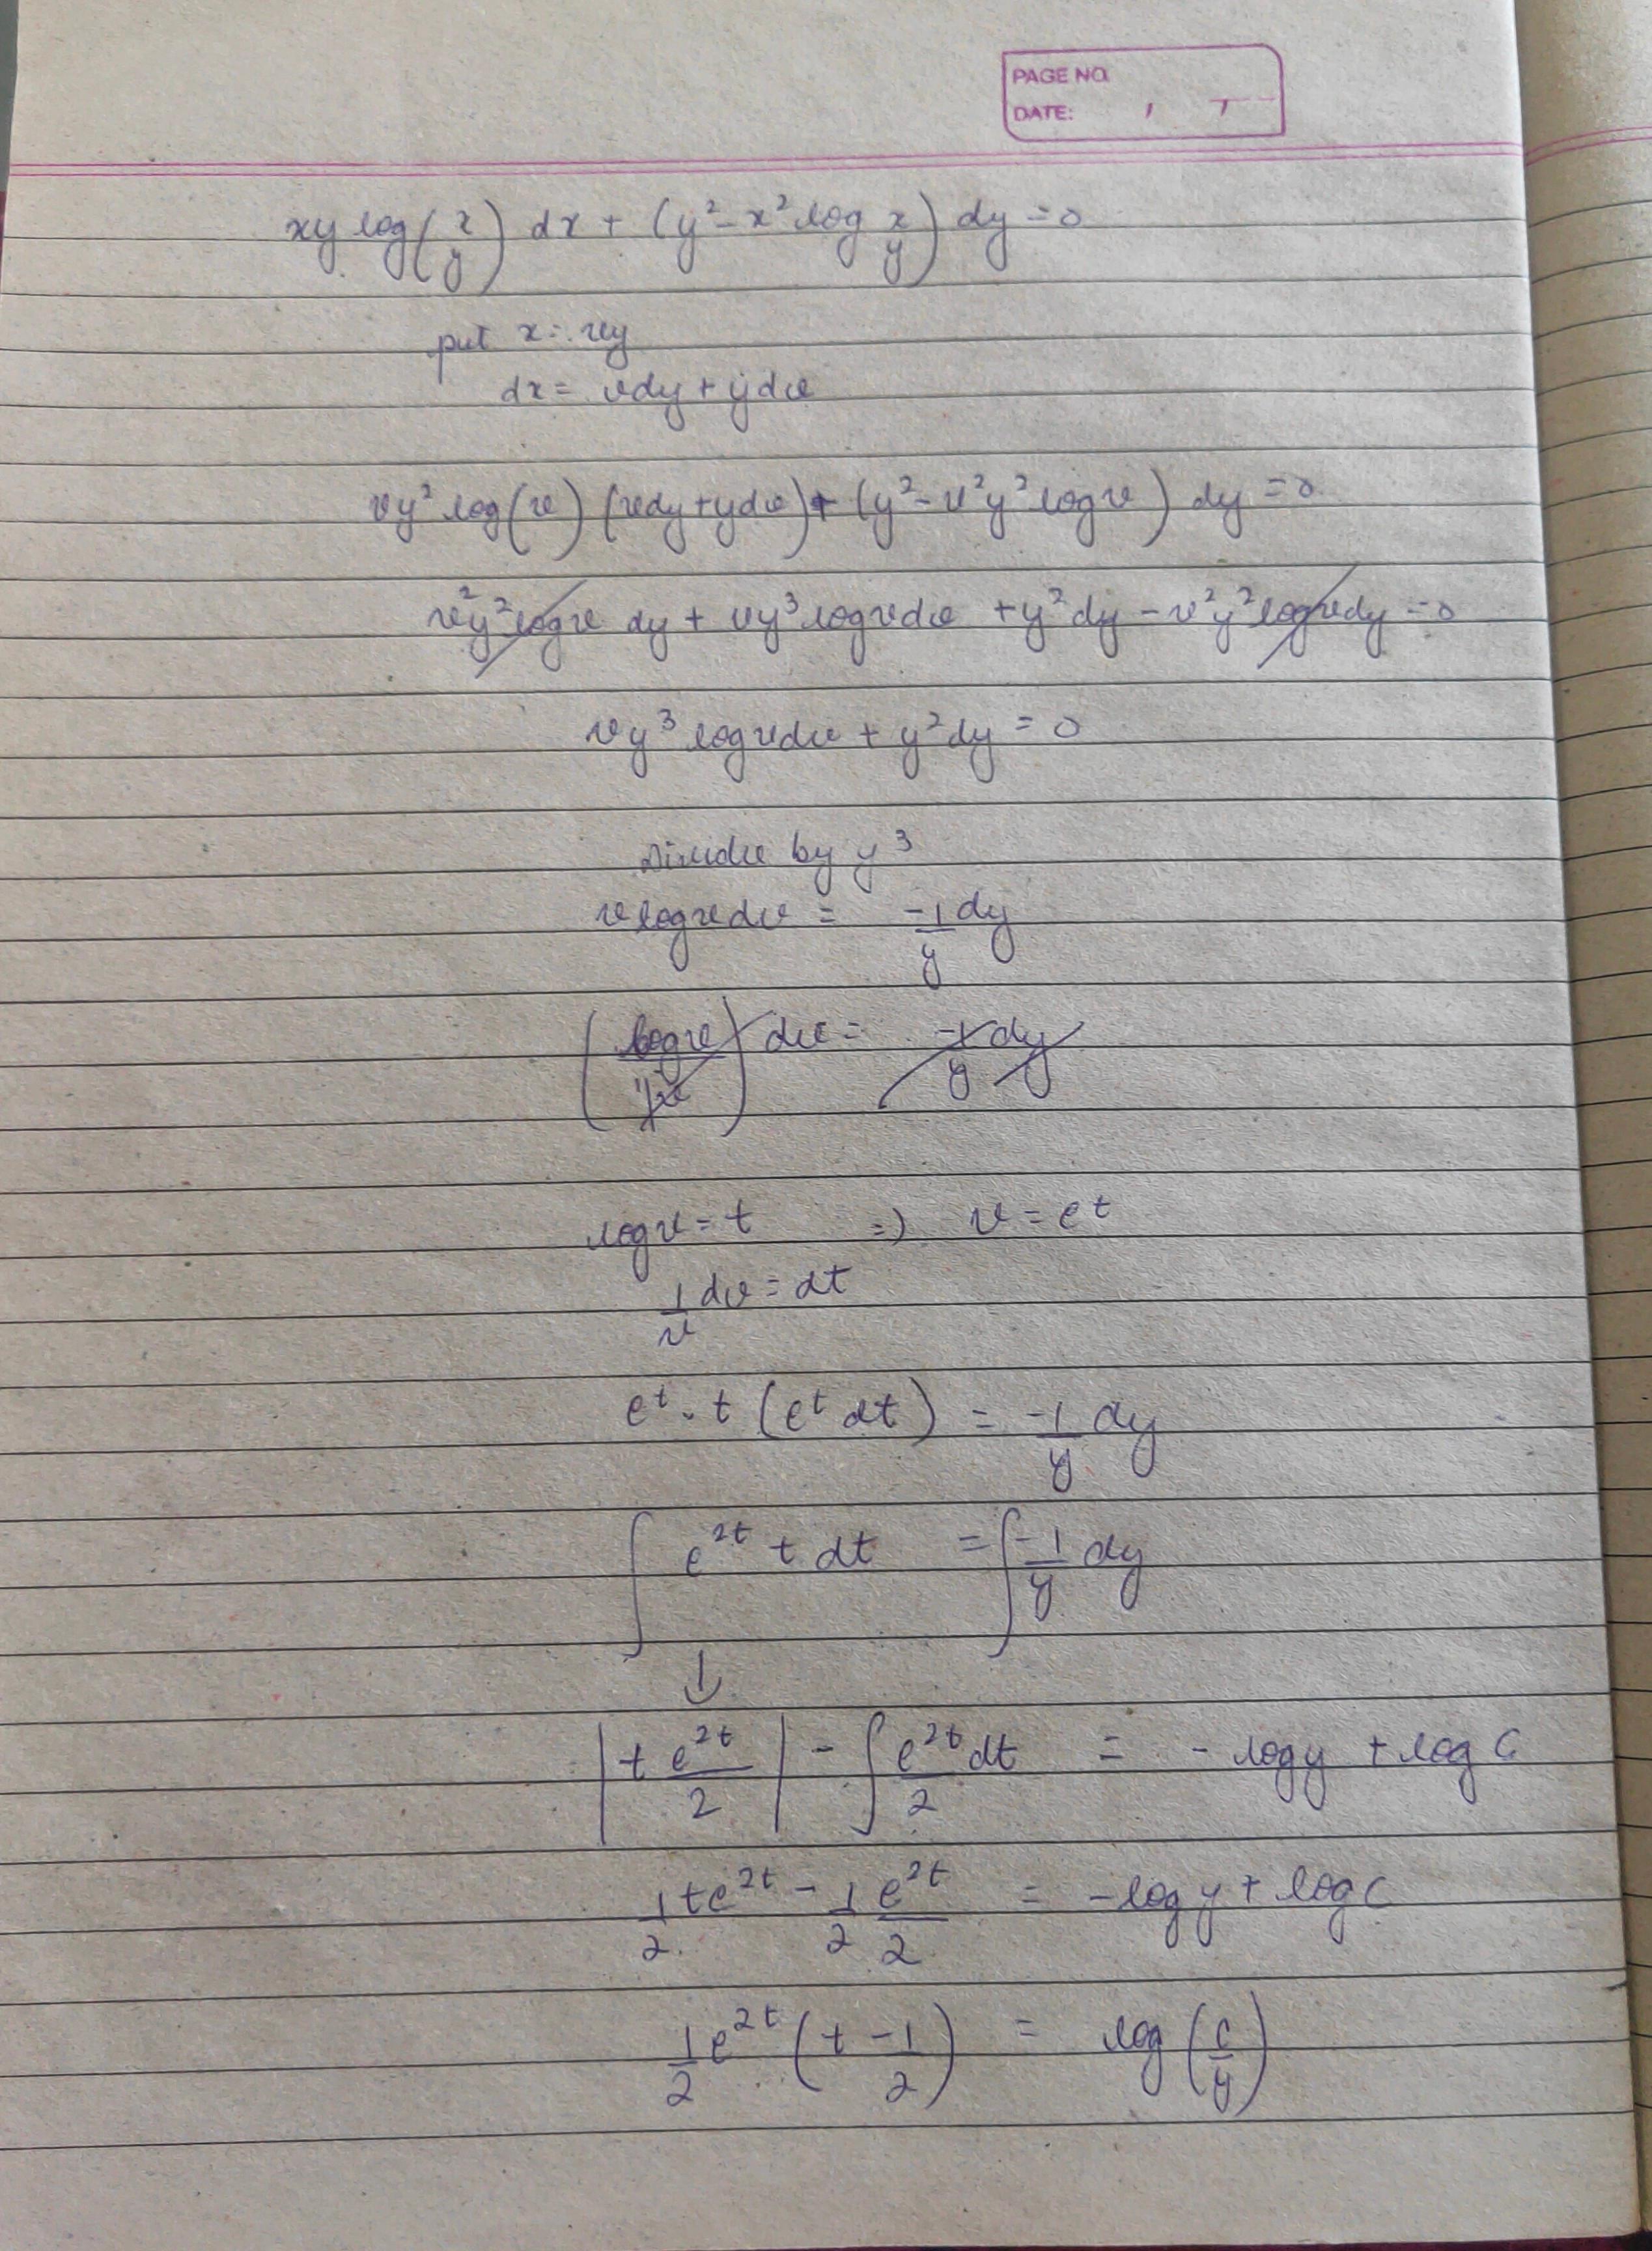 PAGE NO.
DATE: / /
xy log(x/y) dx + (y² - x² log x/y) dy = 0
put x = vy
dx = vdy + ydv
vy² log(v) (vdy + ydv) + (y² - v²y² log v) dy = 0
v²y² log v dy + vy³ log v dv + y² dy - v²y² log v dy = 0
vy³ log v dv + y² dy = 0
Divide by y³
v log v dv = -1/y dy
(log v / 1/v) dv = -1/y dy
log v = t ⇒ v = e^t
1/v dv = dt
e^t . t (e^t dt) = -1/y dy
∫ e^2t t dt = ∫ -1/y dy
↓
| t e^2t/2 | - ∫ e^2t/2 dt = - log y + log C
1/2 t e^2t - 1/2 e^2t/2 = - log y + log C
1/2 e^2t (t - 1/2) = log (C/y)